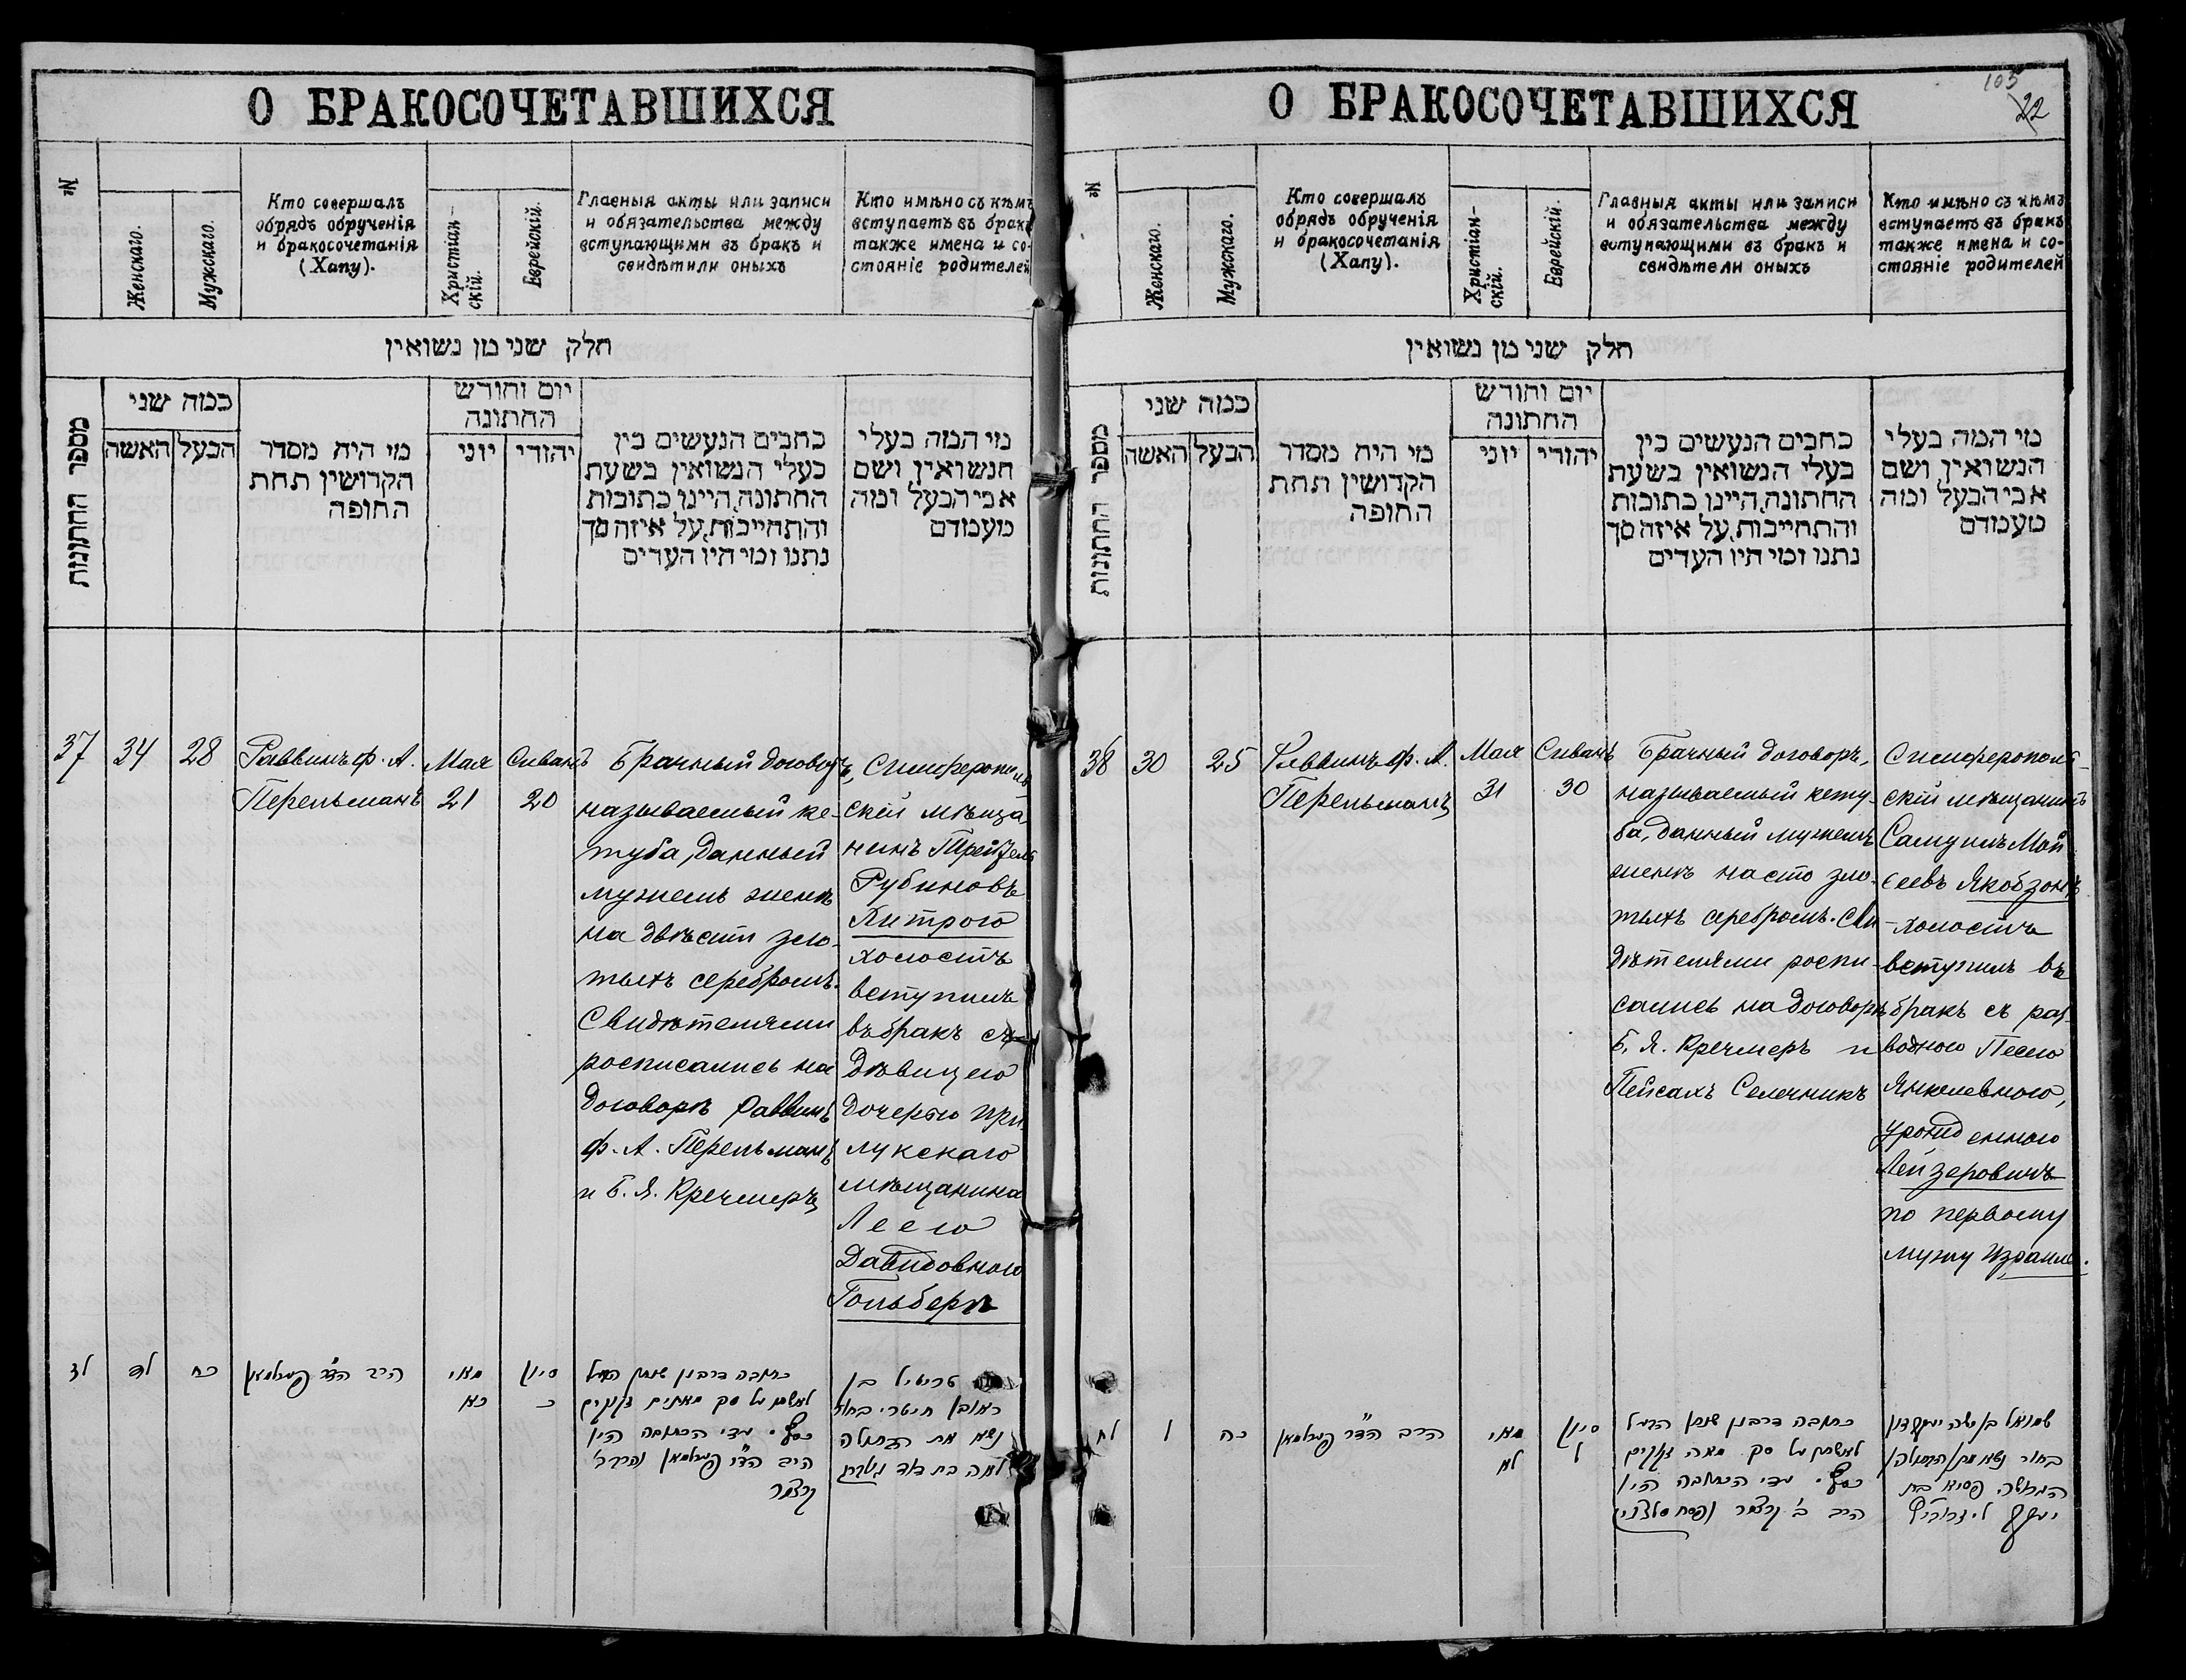 О БРАКОСОЧЕТАВШИХСЯ
№
Женскаго.
Мужскаго.
Кто совершалъ
обрядъ обрученія
и бракосочетанія
(Хапу).
Христіан-
скій.
Еврейскій.
Главныя акты или записи
и обязательства между
вступающими въ бракъ и
свидѣтили оныхъ
Кто имѣно съ кѣмъ
вступаетъ въ бракъ
также имена и со-
стояніе родителей
חלק שני מן נשואין
מספר החתונות
כמה שני
האשה
הבעל
מי היה מסדר
הקדושין תחת
החופה
יום וחורש
החתונה
יוני
יהודי
כתבים הנעשים בין
בעלי הנשואין בשעת
החתונה, היינו כתובות
והתחייבות, על איזה סך
נתנו ומי היו העדים
מי המה בעלי
הנשואין ושם
אבי הבעל ומה
מעמדם
37
34
28
Раввинъ ф. А.
Перельманъ
Мая
21
Сиванъ
20
Брачный договоръ,
называемый ке-
туба, данный
мужемъ женѣ
на двѣсти зло-
тыхъ серебромъ.
Свидѣтелями
росписались на
договорѣ раввинъ
ф. А. Перельманъ
и Б. Я. Кречмеръ
Симферополь
скій мѣща
нинъ Трейтель
Рубиновъ
Хитрого
холостъ
вступилъ
въ бракъ съ
дѣвицею
дочерью при
лукскаго
мѣщанина
Леею
Давидовною
Гольберъ
לז
לד
כח
הרב הד"ר פערלמאן
מאי
כא
סיון
כ
כתובה דרבנן שנתן הבעל
לאשתו על סך מאתים זקוקים
כסף. עדי הכתובה היו
הרב הד"ר פערלמאן והרב ב'
קרצמר
טרייטיל בן
ראובן חיטרי בחור
נשא את הבתולה
לאה בת דוד
О БРАКОСОЧЕТАВШИХСЯ
103
22
№
Женскаго.
Мужскаго.
Кто совершалъ
обрядъ обрученія
и бракосочетанія
(Хапу).
Христіан-
скій.
Еврейскій.
Главныя акты или записи
и обязательства между
вступающими въ бракъ и
свидѣтели оныхъ
Кто имѣно съ кѣмъ
вступаетъ въ бракъ
также имена и со-
стояніе родителей
חלק שני מן נשואין
מספר החתונות
כמה שני
האשה
הבעל
מי היה מסדר
הקדושין תחת
החופה
יום וחורש
החתונה
יוני
יהודי
כתבים הנעשים בין
בעלי הנשואין בשעת
החתונה, היינו כתובות
והתחייבות, על איזה סך
נתנו ומי היו העדים
מי המה בעלי
הנשואין ושם
אבי הבעל ומה
מעמדם
38
30
25
Раввинъ ф. А.
Перельманъ
Мая
31
Сиванъ
30
Брачный договоръ,
называемый кету-
ба, данный мужемъ
женѣ на сто зло-
тыхъ серебромъ. Сви-
дѣтелями роспи-
сались на договорѣ
Б. Я. Кречмеръ и
Пейсахъ Селечникъ
Симферополь-
скій мѣщанинъ
Самуилъ Мой
сеевъ Якобзонъ
- холостъ
вступилъ въ
бракъ съ раз-
водною Песею
Янкелевною,
урожденною
Лейзеровичъ
по первому
мужу Израиль.
לח
ל
כה
הרב הד"ר פערלמאן
מאי
לא
סיון
ל
כתובה דרבנן שנתן הבעל
לאשתו על סך מאה זקוקים
כסף. עדי הכתובה היו
הרב ב' קרצמר ופסח סלצניק
שמואל בן משה יעקבזון
בחור נשא את
הגרושה פסיא בת
יעקב